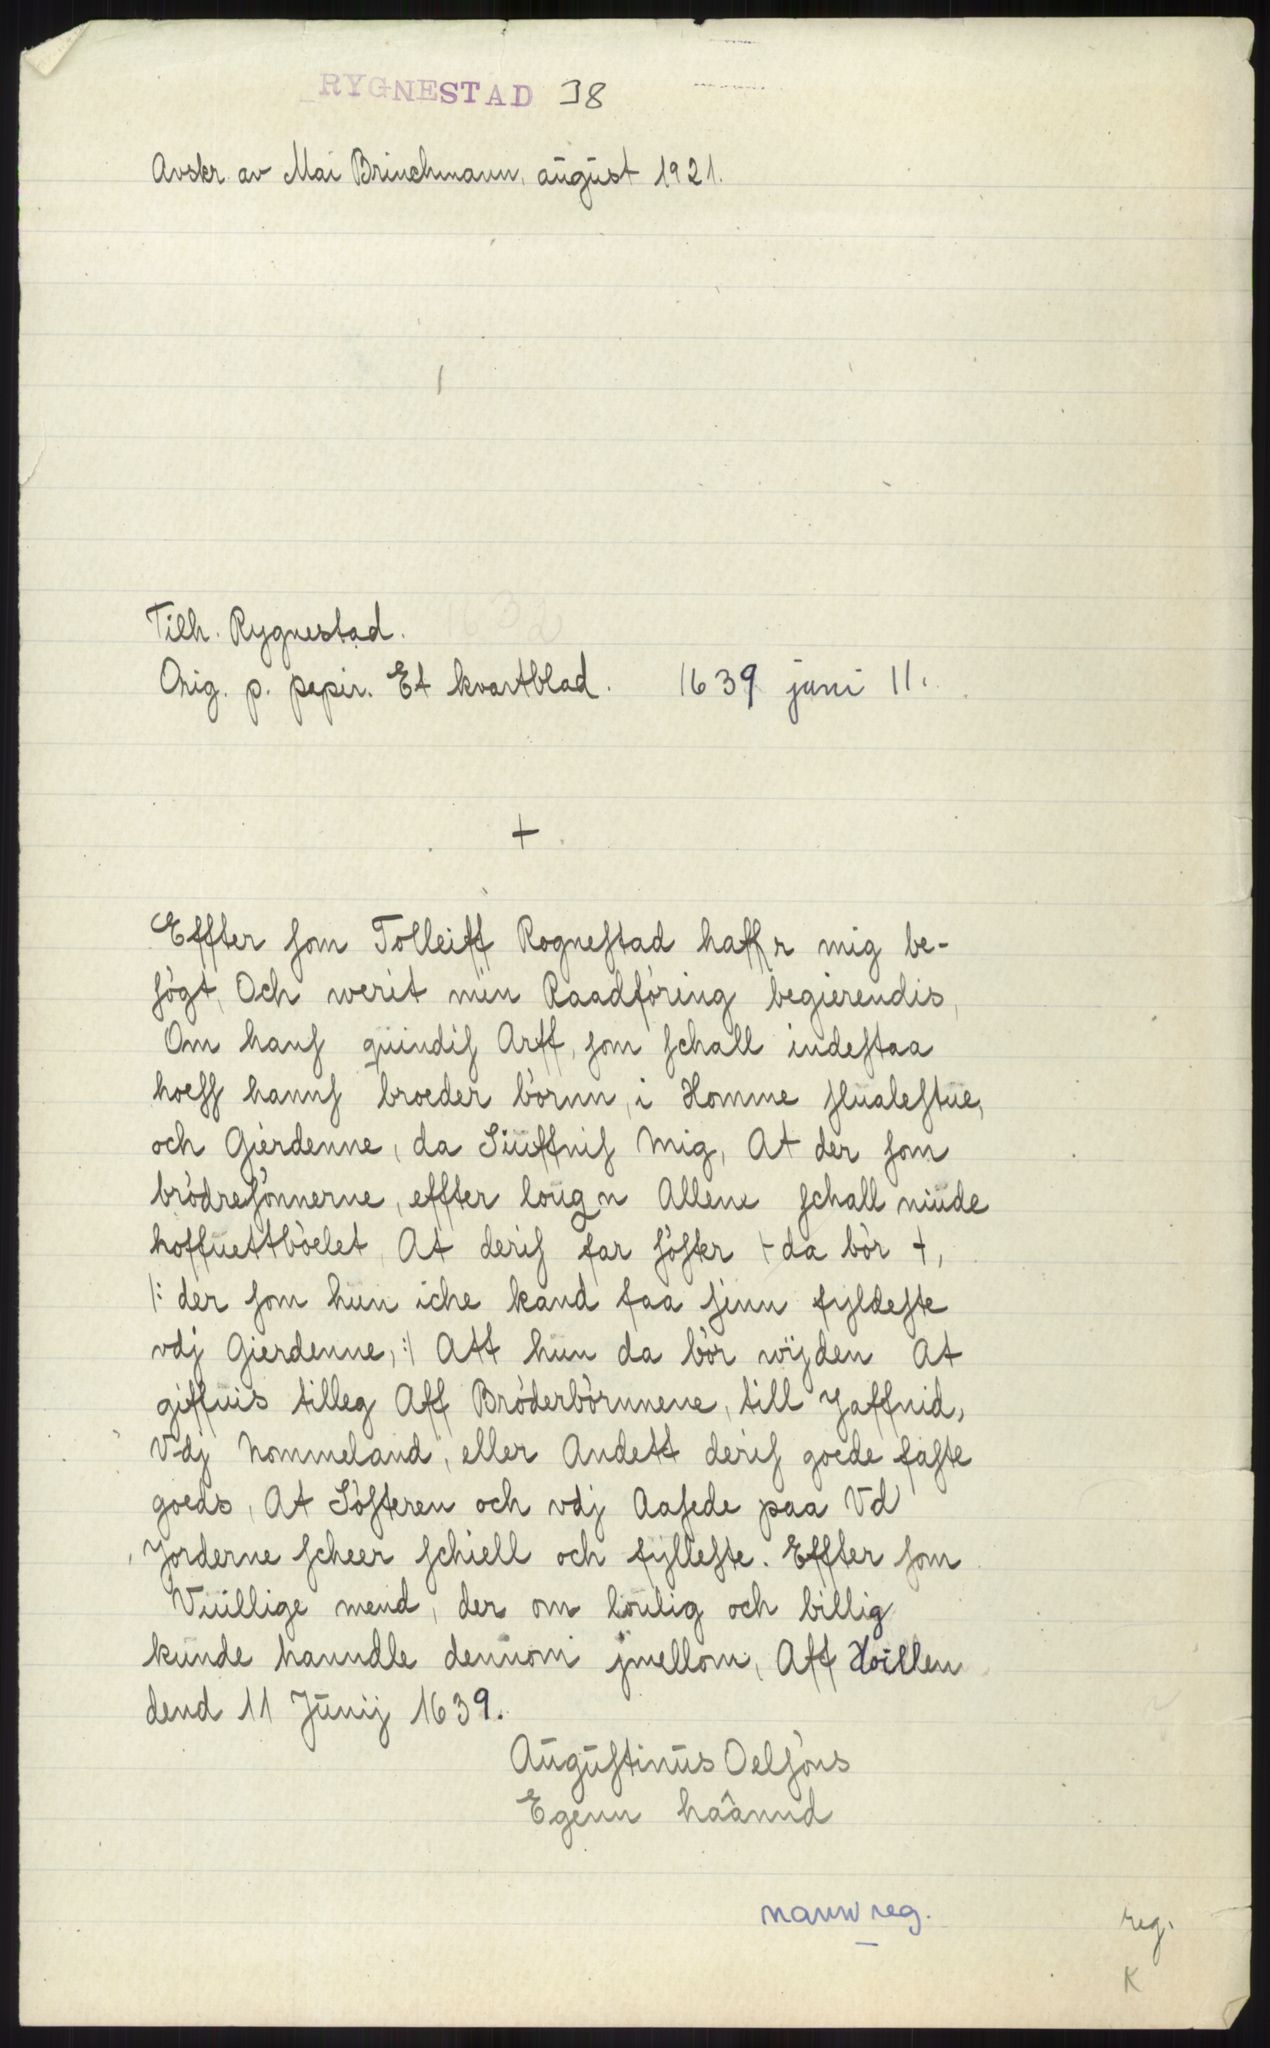 RYGNESTAD 38
Avskr. av Mai Brinchmann, august 1921.
Tilh. Rygnestad.
Orig. p. papir. Et kvartblad. 1639 juni 11.
+
Effter som Tolleiff Rognestad haffr mig be-
søgt, Och werit min Raadføring begierendis,
Om hans quindis Arff, som schall indestaa
hoess hanns broeder børnn, i Homme slualestue,
och Gierdenne, da Siuffnis Mig, At der som
brødresønnerne, effter lougn Allene schall niude
hoffuettbøelet, At deris far søster +da bør+,
/: der som hun iche kand faa sinn fyldeste
vdj Gierdenne, :/ Att hun da bør wijden At
giffuis tilleg Aff Brøderbørnnene, till Jaffnid,
Vdj Nommeland, eller Andett deris goede faste
goeds, At Søsteren och vdj Aasede paa Vd
Jorderne scheer schiell och fylleste. Effter som
Viüllige mend, der om loulig och billig
kunde hanndle dennom jmellom, Aff Hoillen
dend 11 Junij 1639.
Augustinus Oelsøns
Egenn haannd
navnreg.
reg.
K